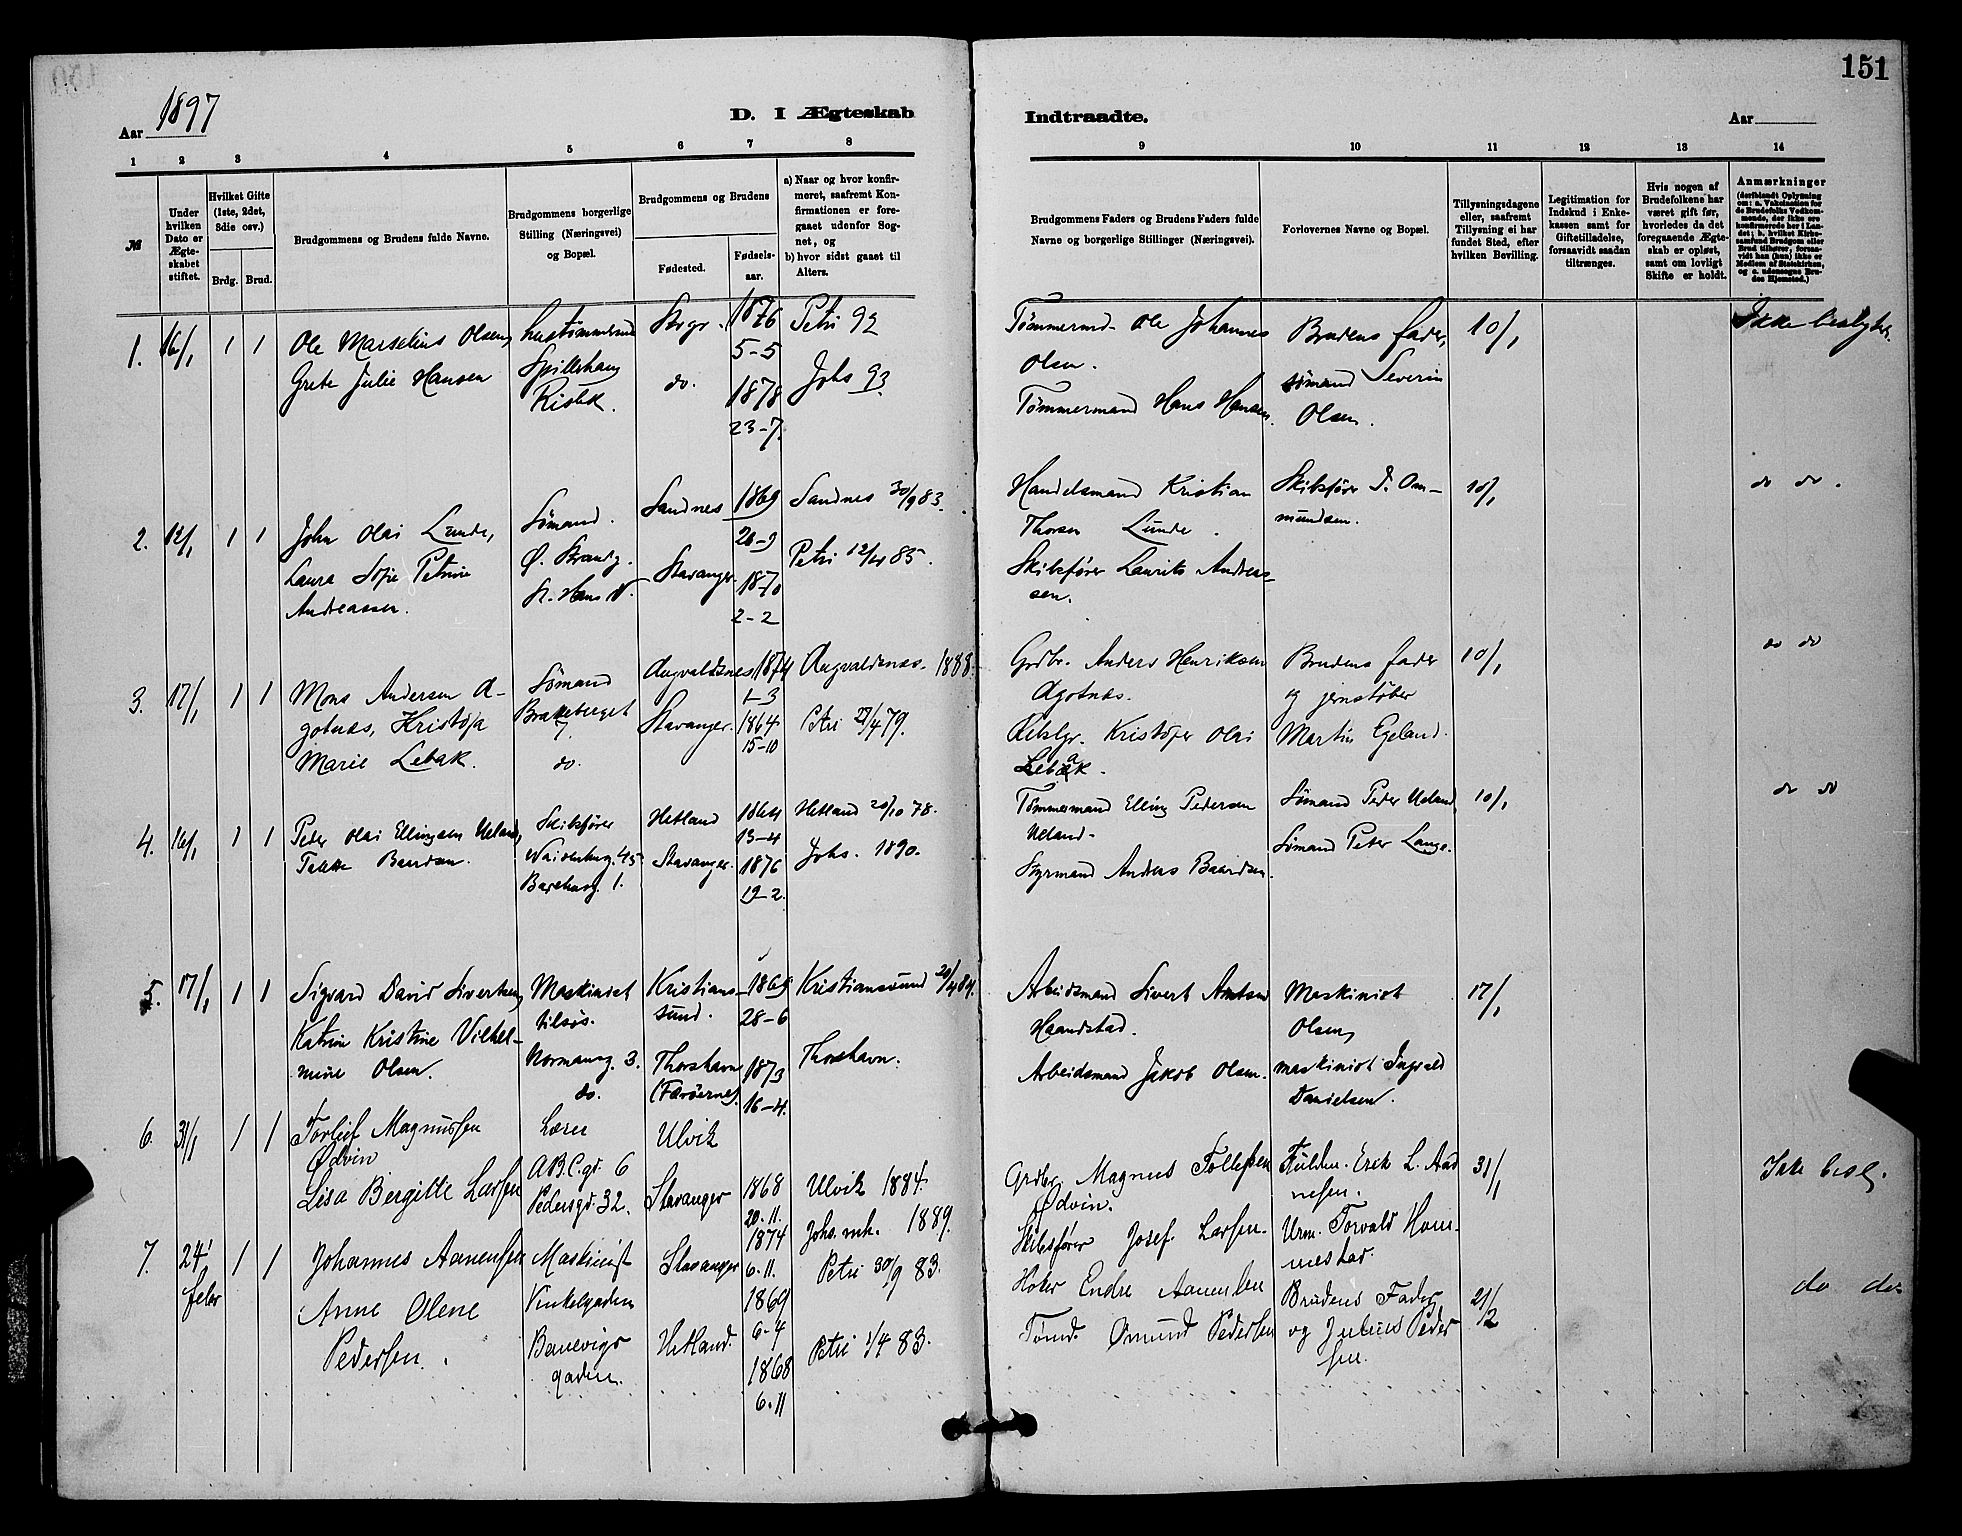 151
Aar 1897
D. I Ægteskab
Indtraadte.
Aar
1 2 3 4 5 6 7 8 9 10 11 12 13 14
№
Under hvilken Dato er Ægteskabet stiftet.
Hvilket Gifte (1ste, 2det, 3die osv.)
Brdg. Brud.
Brudgommens og Brudens fulde Navne.
Brudgommens borgerlige Stilling (Næringsvei) og Bopæl.
Brudgommens og Brudens
Fødested.
Fødselsaar.
a) Naar og hvor konfirmeret, saafremt Konfirmationen er foregaaet udenfor Sognet, og
b) hvor sidst gaaet til Alters.
Brudgommens Faders og Brudens Faders fulde Navne og borgerlige Stillinger (Næringsvei).
Forlovernes Navne og Bopæl.
Tillysningsdagene eller, saafremt Tillysning ei har fundet Sted, efter hvilken Bevilling.
Legitimation for Indskud i Enkekassen samt for Giftetilladelse, forsaavidt saadan tiltrænges.
Hvis nogen af Brudefolkene har været gift før, hvorledes da det foregaaende Ægteskab er opløst, samt om lovligt Skifte er holdt.
Anmærkninger
(deriblandt Oplysning om: a. Vakcination for de Brudefolks Vedkommende, der ikke ere konfirmerede her i Landet; b. hvilket Kirkesamfund Brudgom eller Brud tilhører, forsaavidt han (hun) ikke er Medlem af Statskirken, og c. udensogns Brudes Hjemsted.)
1. 16/1 1 1
Ole Marselius Olsen,
Grete Julie Hansen
hustømmermd
Risbk.
Stvgr.
do.
1876
5-5
1878
23-7.
Petri 92
Johs 93.
Tømmermd. Ole Johannes
Olsen.
Tømmermand Hans Hansen.
Brudens fader,
sømand Severin
Olsen.
10/1
Ikke beslygtet.
2. 12/1 1 1
John Olai Lunde,
Laura Sofie Petrine
Andreassen.
Sømand.
Ø. Strandg.
St. Hans V.
Sandnes
Stavanger.
1869
26-9
1870
2-2
Sandnes 30/9 83.
Petri 12/4 85.
Handelsmand Kristian
Thorsen Lunde.
Skibsfører Laurits Andreas-
sen.
Skibsfører J. Om-
mundsen.
10/1
do do.
3. 17/1 1 1
Mons Andersen A-
gotnæs, Kristofa
Marie Lebak.
Sømand
Brakeberget
7.
do.
Augvaldsnes
Stavanger.
1874
1-3
1864
15-10
Augvaldsnæs. 1888.
Petri 27/4 79.
Grdbr. Anders Henriksen
Agotnæs.
Rebslgr. Kristofer Olai
Lebak.
Brudens fader
og jernstøber
Martin Egeland.
10/1
do do
4. 16/1 1 1
Peder Olai Ellingsen Ueland,
Takke Baardsen.
Skibsfører
Vaidenbug. 45
1.
Hetland
Stavanger.
1864
13-4
1876
19-2.
Hetland 20/10 78.
Johs. 1890.
Tømmermand Elling Pedersen
Ueland.
Styrmand Anders Baardsen.
Sømand Peder Ueland
Sømand Peter Lange.
10/1
do do
5. 17/1 1 1
Sigvard David Sivertsen,
Katrine Kristine Vilhel-
mine Olsen.
Maskinist
tilsøs.
Normansg. 3.
do.
Kristians-
sund.
Thorshavn
(Færøerne).
1869
28-6
1873
16-4.
Kristianssund 20/4 84.
Thorshavn.
Arbeidsmand Sivert Arntsen
Haandstad.
Arbeidsmand Jakob Olsen.
Maskinist
Olsen,
maskinist Ingvald
Danielsen.
17/1
6. 31/1 1 1
Torlief Magnussen
Ødvin
Lisa Bergitte Larsen
Lærer
A.B.C.gd. 6
Pedersgd. 32.
Ulvik
Stavanger
1868
20.11.
1874
6.11.
Ulvik 1884.
Johs. mh. 1889.
Grdbr. Magnus Tollefsen
Ødvin.
Skibsfører Josef Larsen.
Fuldm. Erik L. Aad
nesen.
Urm. Torvald Hom-
mestad.
31/1
Ikke besl.
7. 24' Febr 1 1
Johannes Aanensen
Anne Olene
Pedersen.
Maskinist
Vinkelgaden
Banevigs
gaden.
Stavanger
Hetland.
1869
6-4
1868
6.11
Petri 30/9 83.
Petri 1/4 83.
Høker Endre Aanensen
Tømd. Omund Pedersen
Brudens Fader
og Julius Peder
sen.
21/2
do do